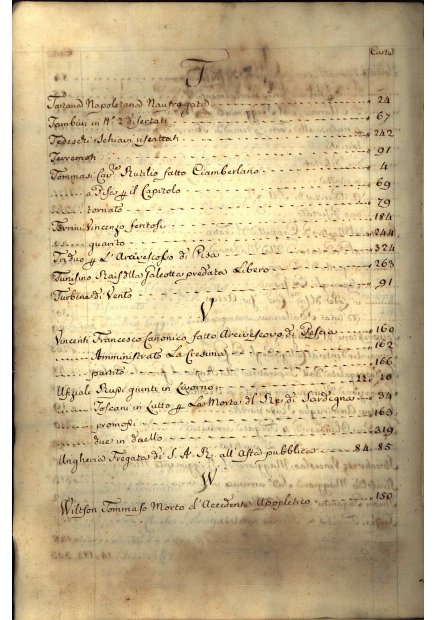 Carte
T
Tartana Napoletana Naufragata 24
Tamburi in N.º 2 Disertati 67
Tedeschi Schiavi riscattati 242
Terremoti 91
Tommasi Cav.e Rutilio fatto Ciamberlano 4
a Pisa p il Capitolo 69
tornato 79
Vincenzo feritosi 184
guarito 244
Triduo p L'Arcivescofo di Pisa 324
Tunisino Rais della Galeotta predata Libero 263
Turbine di Vento 91
V
Vincenti Francesco Canonico fatto Arcivescovo di Pescia 160
Amministrato La Cresima 162
partito 166
Ufiziali Russi giunti in Livorno 11 10
Toscani in Lutto p La Morte del Re di Sardegna 34
promossi 163
due in duello 319
Ungheria Fregata di S. A. R. all'Asta pubblica 84. 85
W
Wiltson Tommaso Morto d'Accidente Apopletico 150